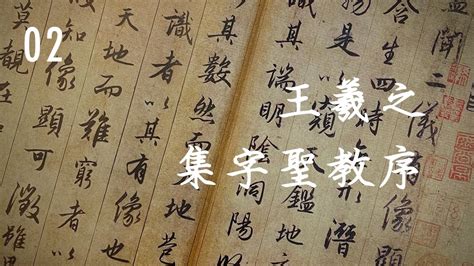 02
王羲之
集字聖教序
蓋聞二儀
含生四時無形潛
是以窺天鑑地
識其端明陰洞陽
其數然而天地苞
識者以其有像也
天地而難窮者以
知像顯可徵雖
莫覩在